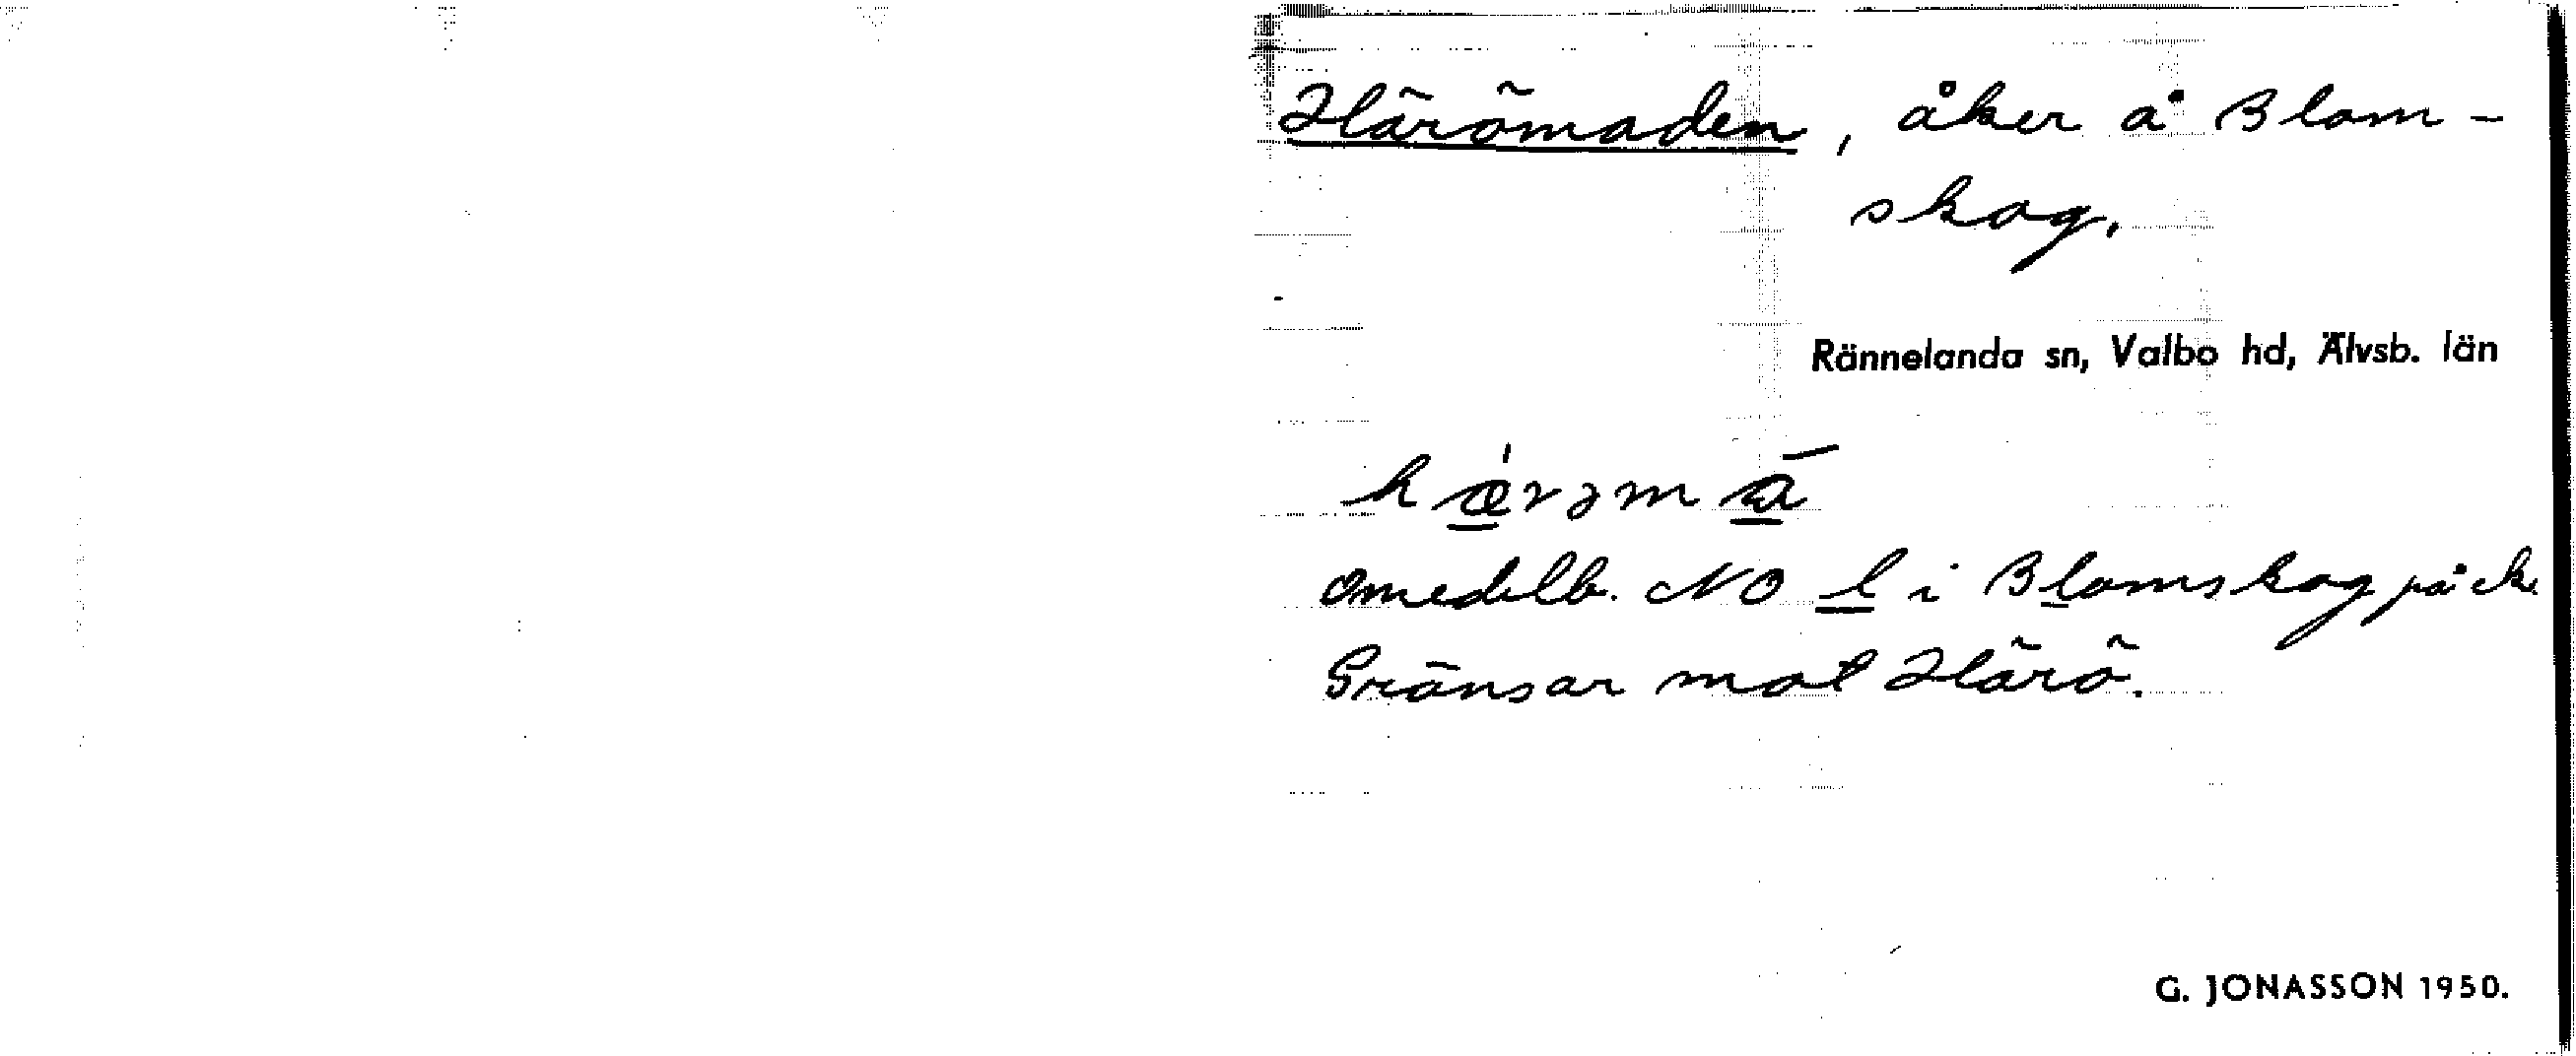 Härömaden, åker å Blom-
skog.
Rännelanda sn, Valbo hd, Älvsb. län
omedelb. NO l i Blomskog på ek.
Gränsar mot Härö.
G. JONASSON 1950.